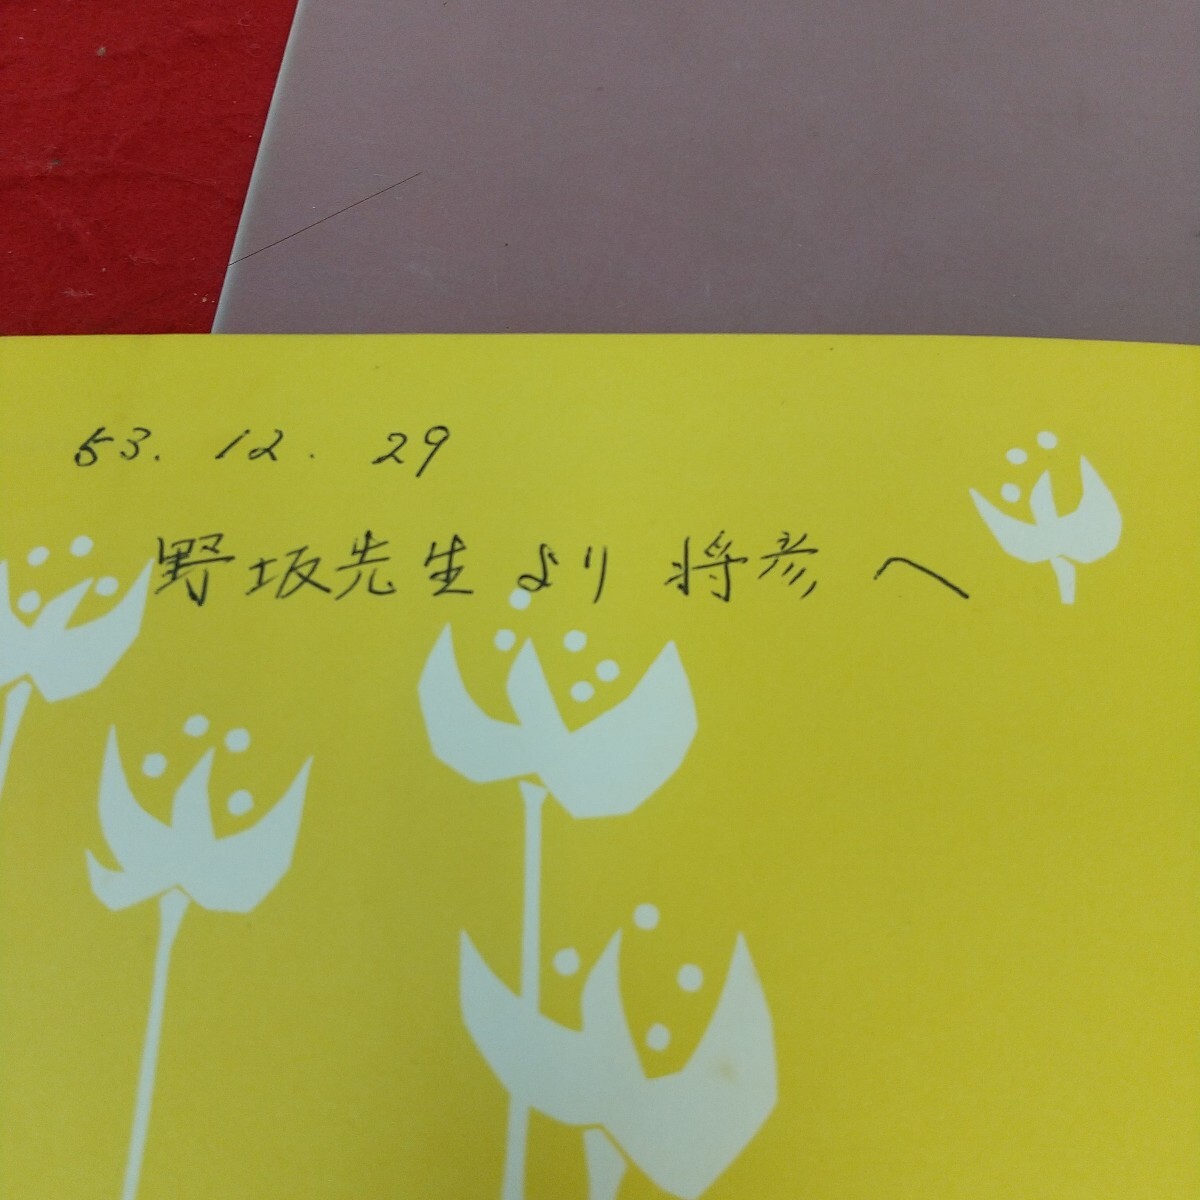 53. 12. 29
野坂先生より 将彦へ